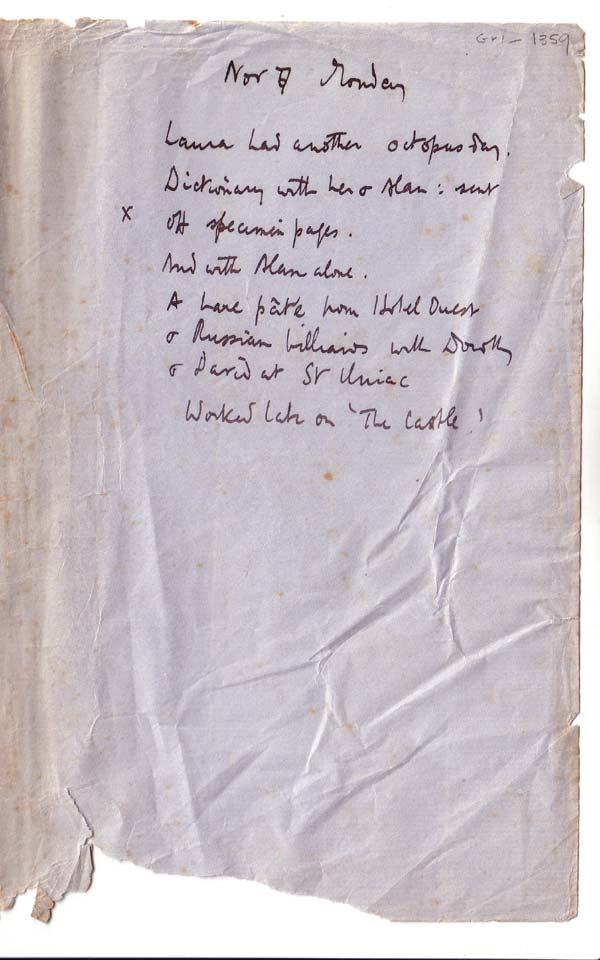 Gr1 – 1359
Nov 7 Monday
Laura had another octopus day.
Dictionary with her & Alan : sent
x off specimen pages.
And with Alan alone.
A hare pâté from Hotel Ouest
& Russian billiards with Dorothy
& David at St Uniac
Worked late on 'The Castle.'